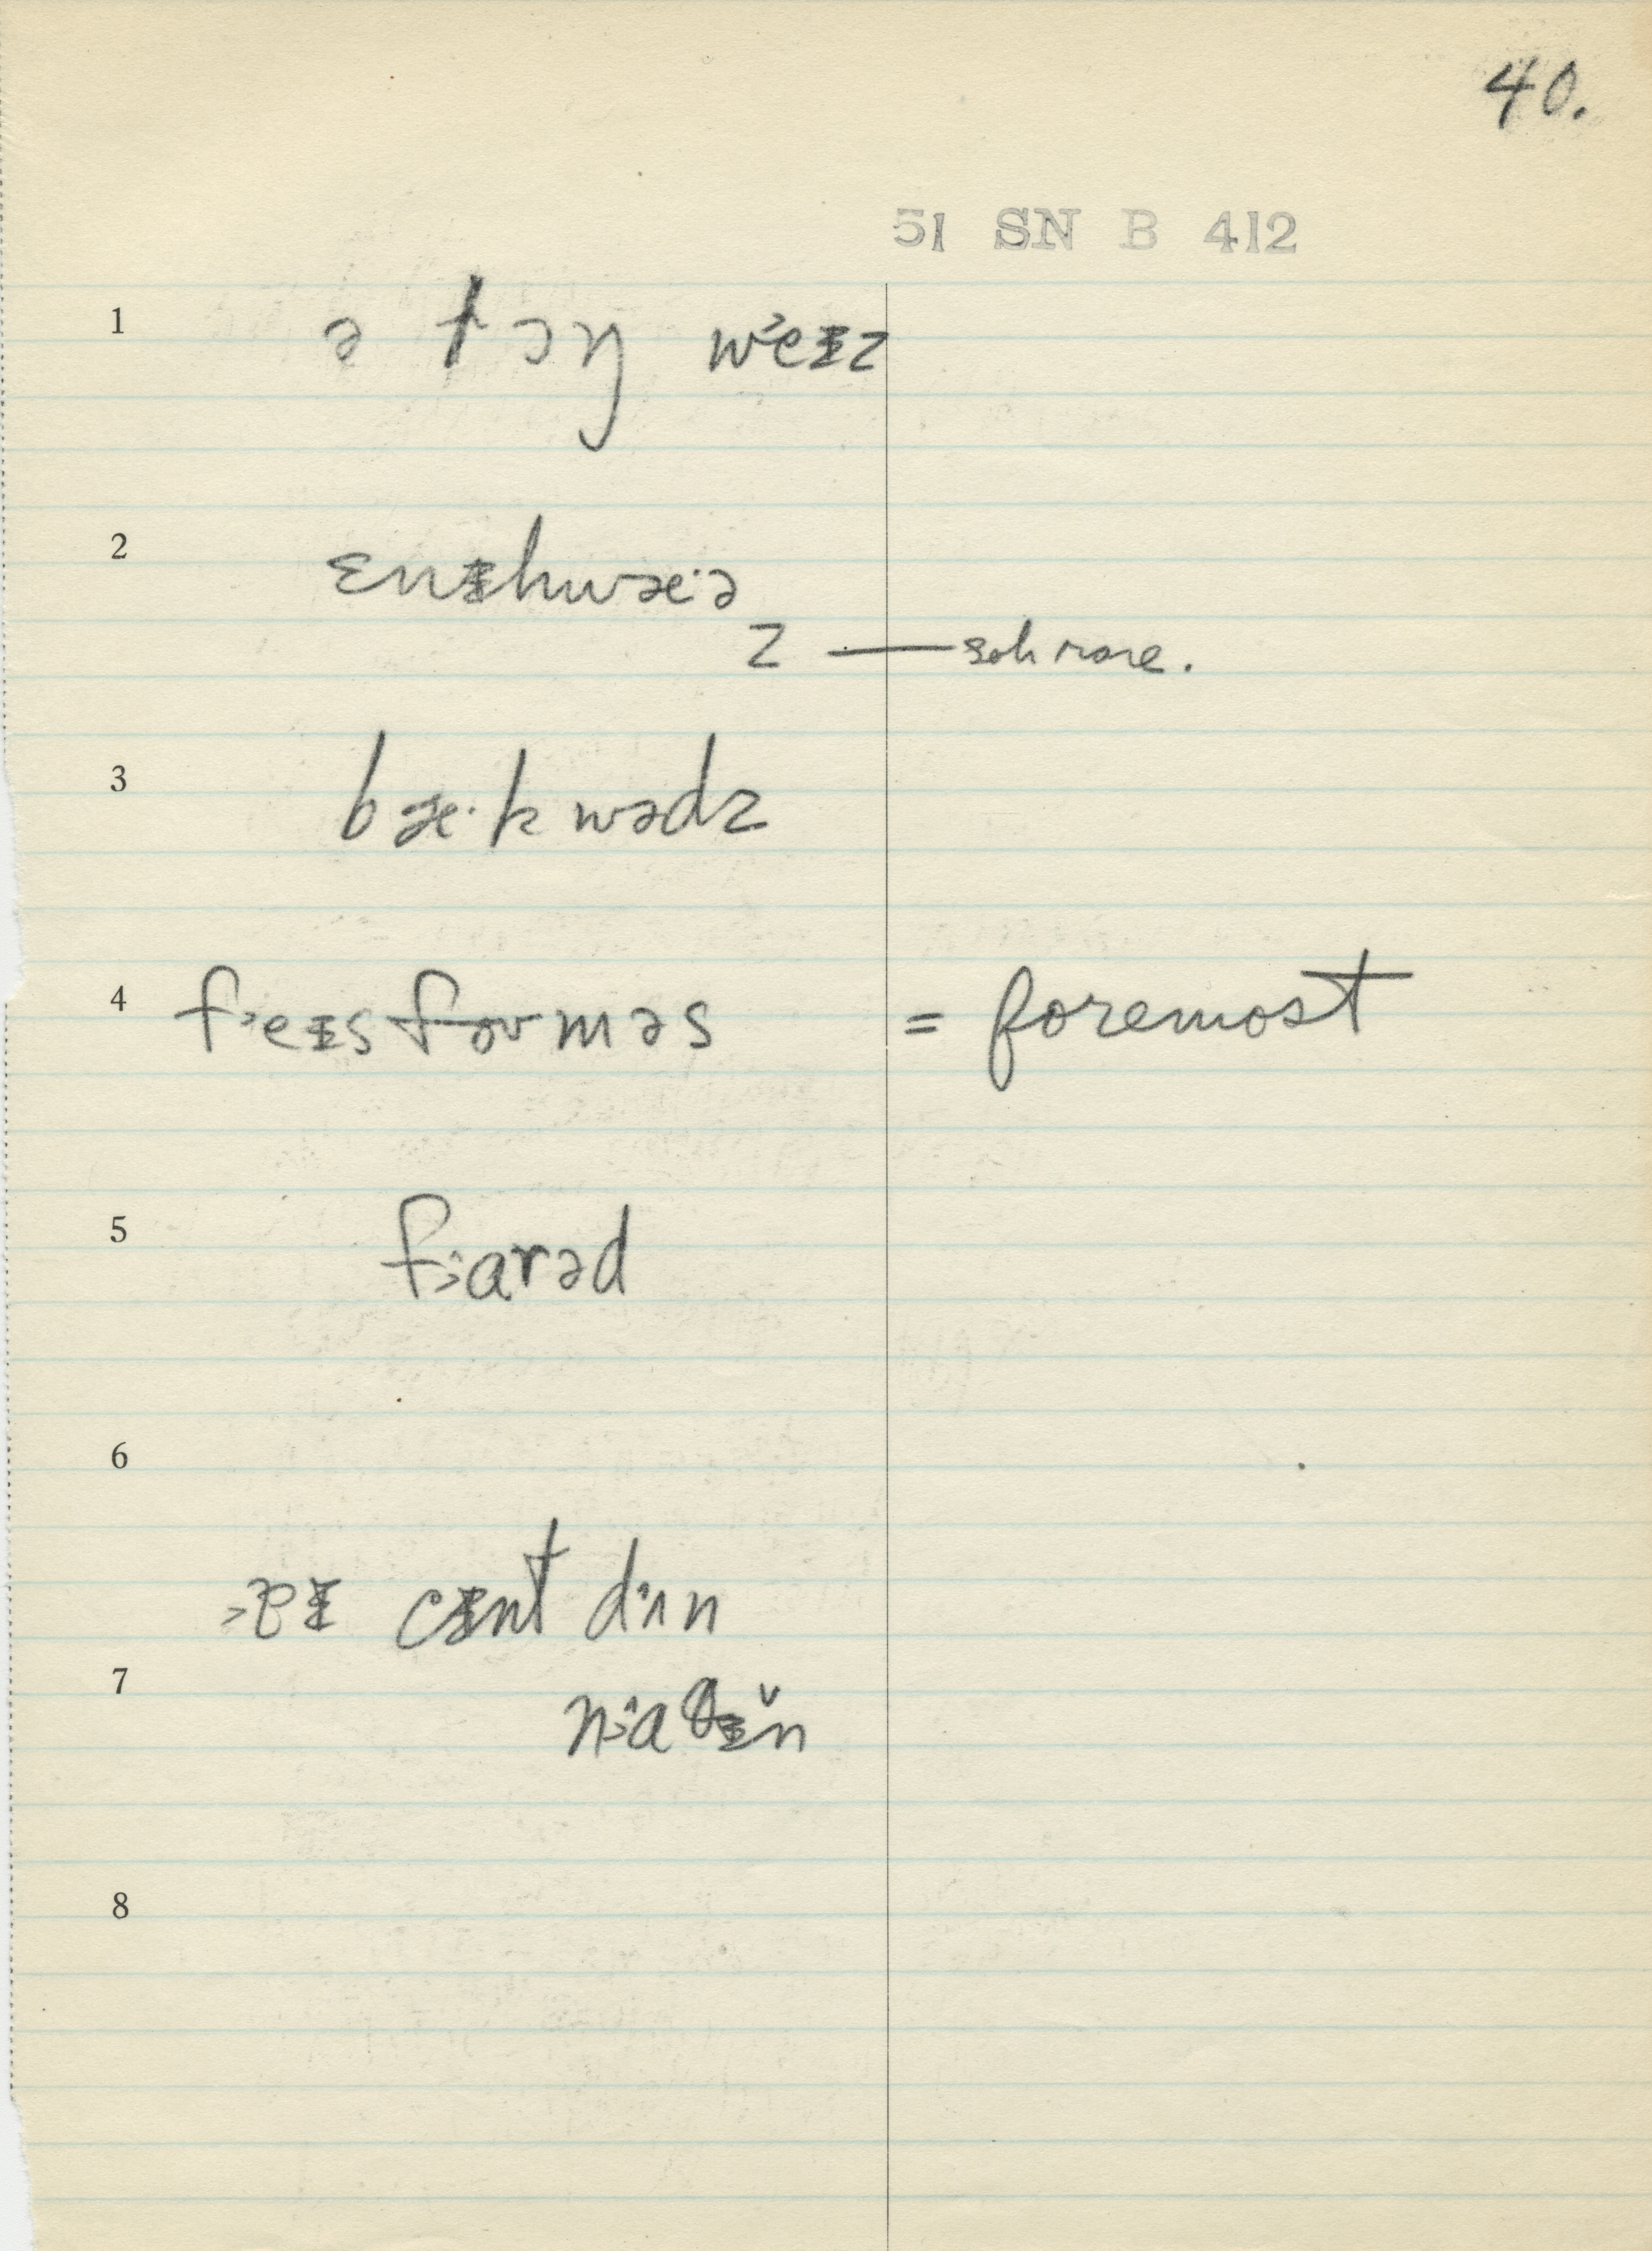 40.
51 SN B 412
1 ə t ɔŋ w˃eɪz
2 ɛnɪhwæ·ə
z — soh rare.
3 bæ·kwədz
4 f˃eɪsfoʊməs = foremost
5 f˃ɑrəd
6
˃ɐɪ cɪnt dʌn
7 n˃ɑθɪ̆n
8